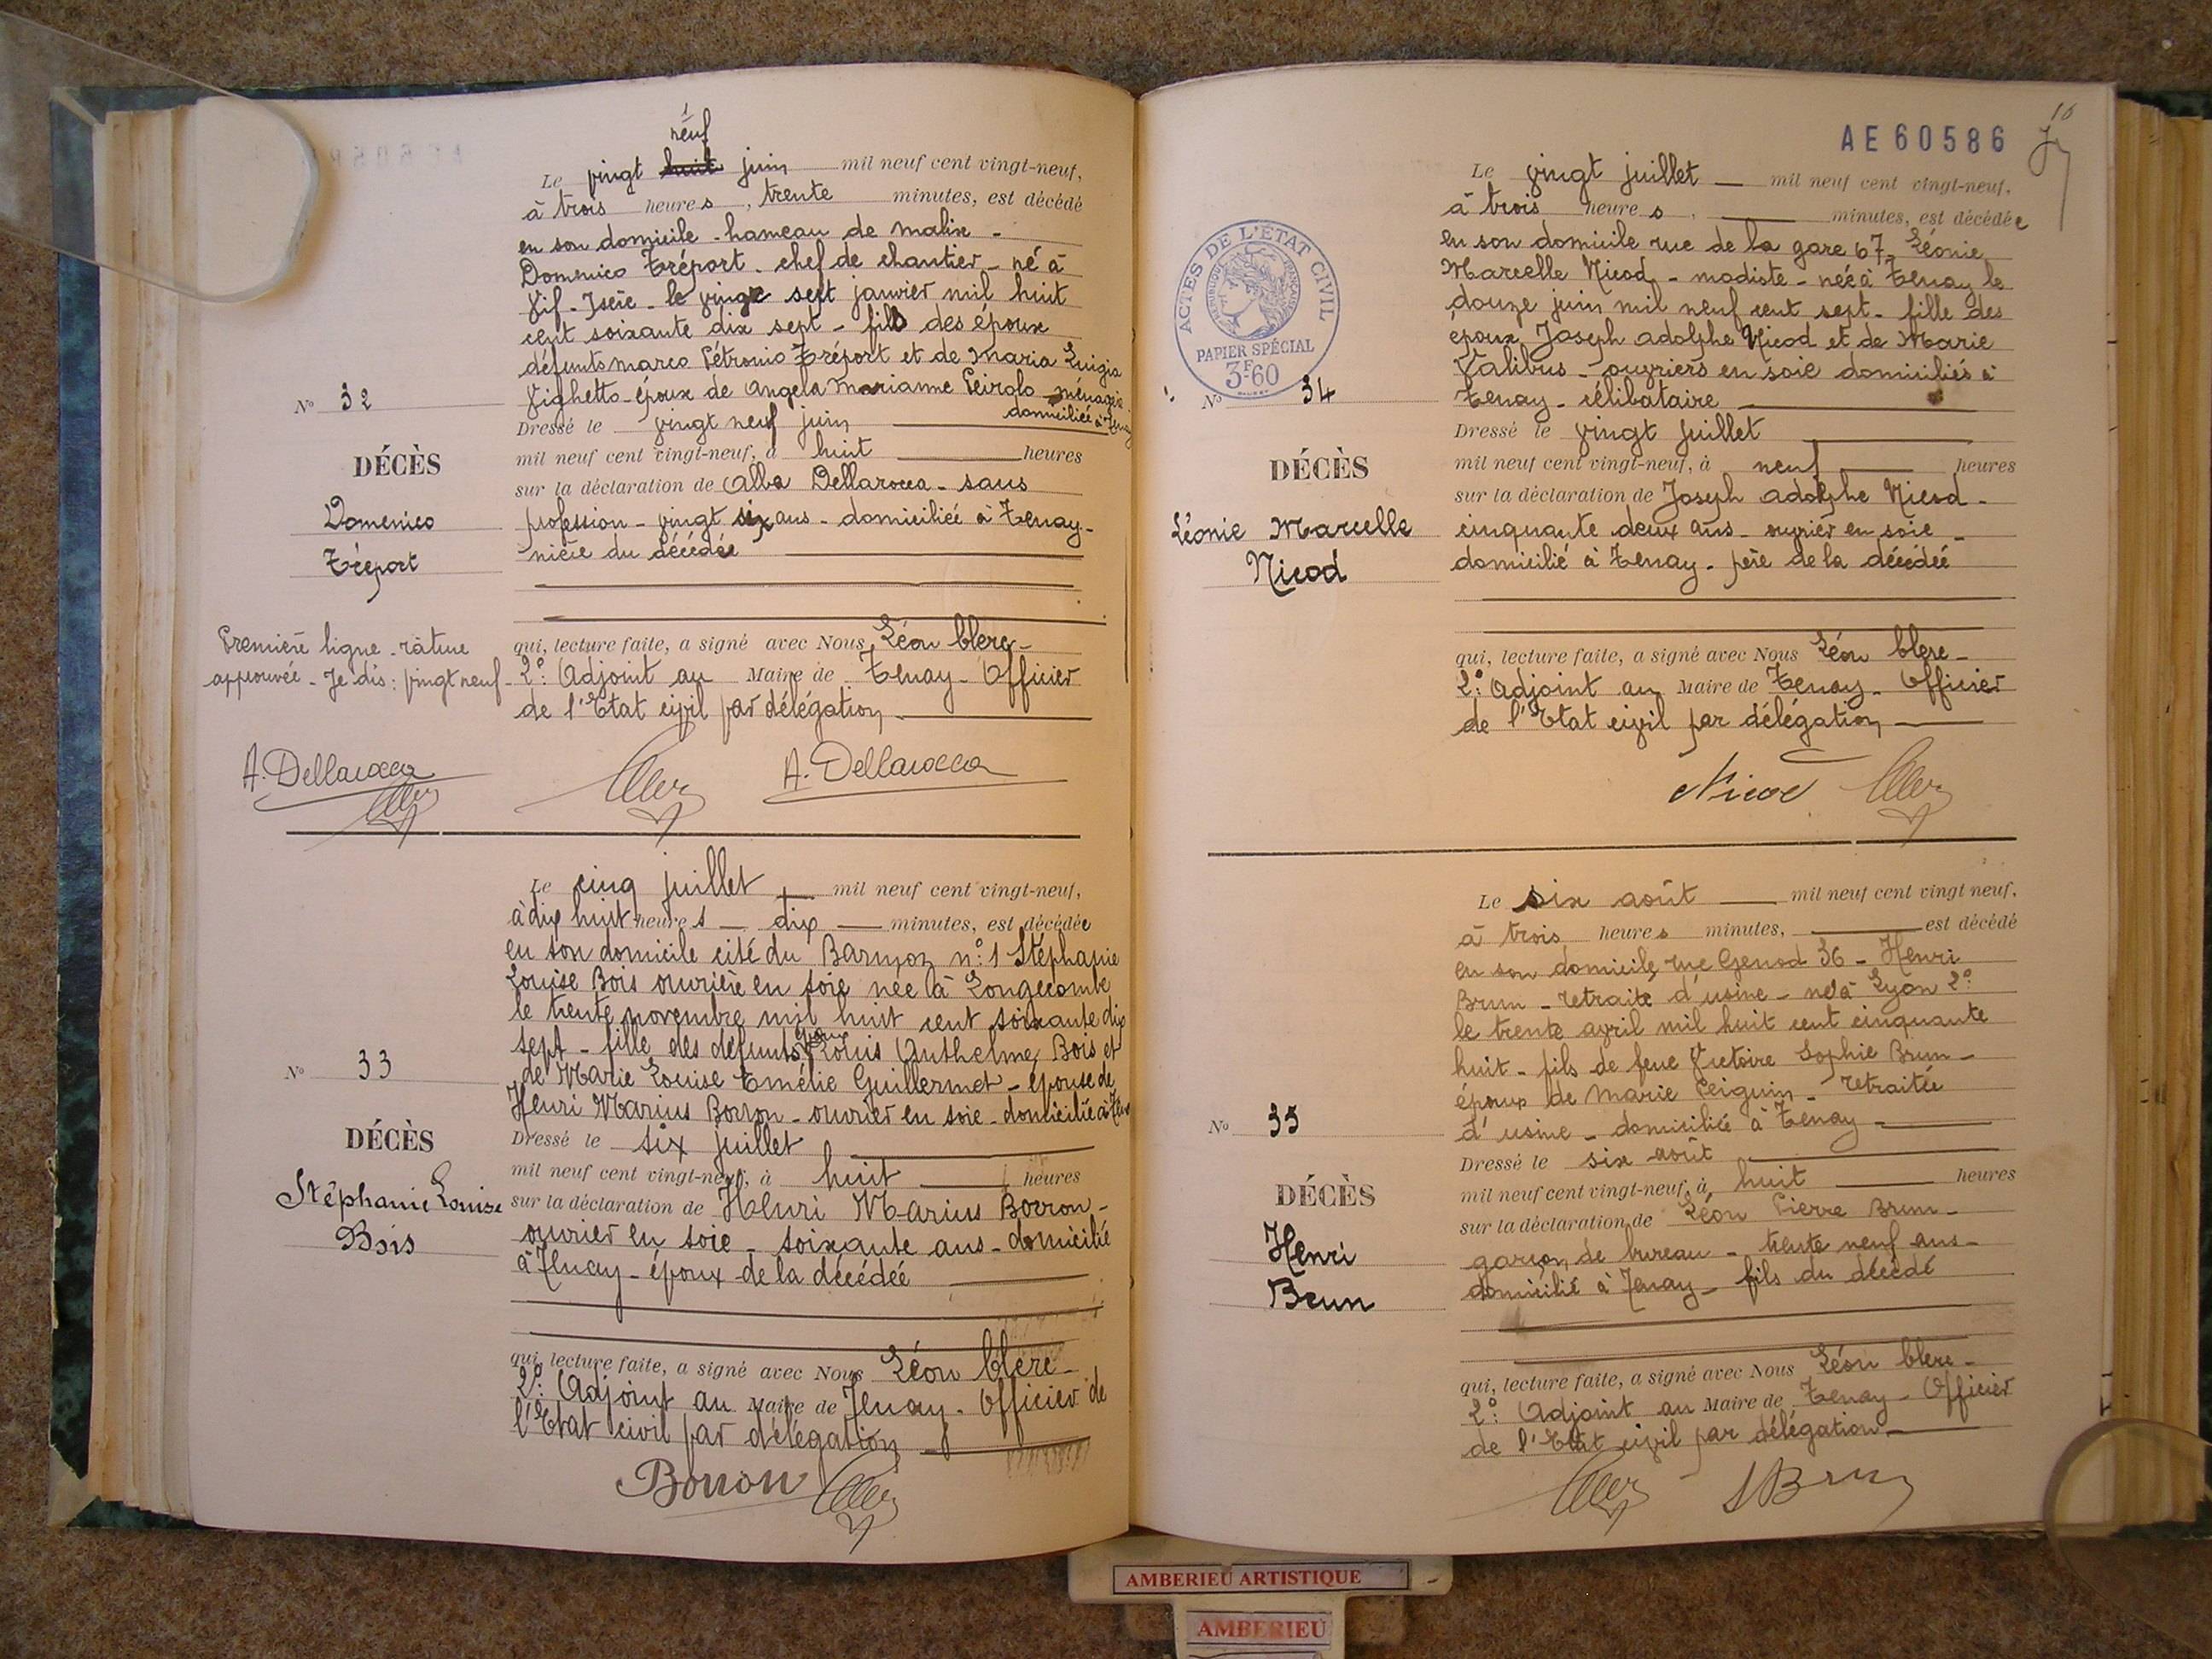 neuf
Le vingt huit juin mil neuf cent vingt-neuf,
à trois heures, trente minutes, est décédé
en son domicile - hameau de malix -
Domenico Tréport - chef de chantier - né à
Vif - Isère - le vingt sept janvier mil huit
cent soixante dix sept - fils des époux
défunts marco Pétronio Tréport et de Maria Luigia
Vighetto - époux de Angela Marianne Peirolo - ménagère
domiciliée à Tenay
N° 32
Dressé le vingt neuf juin
mil neuf cent vingt-neuf, à huit heures
DÉCÈS
sur la déclaration de Alba Dellarocca - sans
Domenico
profession - vingt six ans - domiciliée à Tenay -
Tréport
nièce du décédé
Première ligne - râture
approuvée - Je dis : vingt neuf -
qui, lecture faite, a signé avec Nous Léon Clerc -
2e: Adjoint au Maire de Tenay - Officier
de l'Etat civil par délégation
A. Dellarocca
A. Dellarocca
Le cinq juillet mil neuf cent vingt-neuf,
à dix huit heures - dix - minutes, est décédée
en son domicile cité du n°: 1 Stéphanie
Louise Bois ouvrière en soie née à Longecombe
le trente novembre mil huit cent soixante dix
sept - fille des défunts époux Louis Anthelme Bois et
de Marie Louise Emélie Guillermet - épouse de
Henri Marius Borron - ouvrier en soie - domicilié à Tenay
N° 33
DÉCÈS
Stéphanie Louise
Bois
Dressé le six juillet
mil neuf cent vingt-neuf, à huit heures
sur la déclaration de Henri Marius Borron -
ouvrier en soie - soixante ans - domicilié
à Tenay - époux de la décédée
qui, lecture faite, a signé avec Nous Léon Clerc -
2e: Adjoint au Maire de Tenay - Officier de
l'Etat civil par délégation
Borron
16
AE60586
ACTES DE L'ÉTAT CIVIL
RÉPUBLIQUE FRANÇAISE
PAPIER SPÉCIAL
3F60
Le vingt juillet - mil neuf cent vingt-neuf,
à trois heures, minutes, est décédée
en son domicile rue de la gare 67, Léonie
Marcelle Nicod - modiste - née à Tenay le
douze juin mil neuf cent sept - fille des
époux Joseph adolphe Nicod et de Marie
Valibus - ouvriers en soie domiciliés à
Tenay - célibataire
N° 34
DÉCÈS
Léonie Marcelle
Nicod
Dressé le vingt juillet
mil neuf cent vingt-neuf, à neuf heures
sur la déclaration de Joseph adolphe Nicod -
cinquante deux ans - ouvrier en soie -
domicilié à Tenay - père de la décédée
qui, lecture faite, a signé avec Nous Léon Clerc -
2e: Adjoint au Maire de Tenay - Officier
de l'Etat civil par délégation
Nicod
Le six août mil neuf cent vingt neuf,
à trois heures minutes, est décédé
en son domicile, rue Genod 36 - Henri
Brun - retraité d'usine - né à Lyon 2e:
le trente avril mil huit cent cinquante
huit - fils de feue Victoire Sophie Brun -
époux de Marie Peiguin - retraitée
d'usine - domiciliée à Tenay
N° 35
DÉCÈS
Henri
Brun
Dressé le six août
mil neuf cent vingt-neuf, à huit heures
sur la déclaration de Léon Pierre Brun -
garçon de bureau - trente neuf ans -
domicilié à Tenay - fils du décédé
qui, lecture faite, a signé avec Nous Léon Clerc -
2e: Adjoint au Maire de Tenay - Officier
de l'Etat civil par délégation
LBrun
AMBERIEU ARTISTIQUE
AMBERIEU